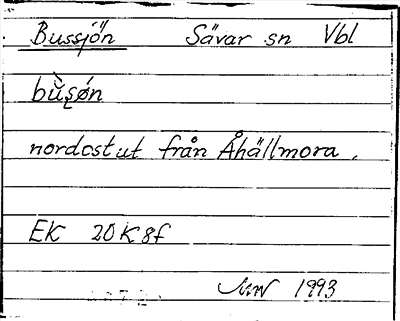 Bussjön Sävar sn Vbl
bùʂøn
nordost ut från Åhällmora.
EK 20K8f
1993